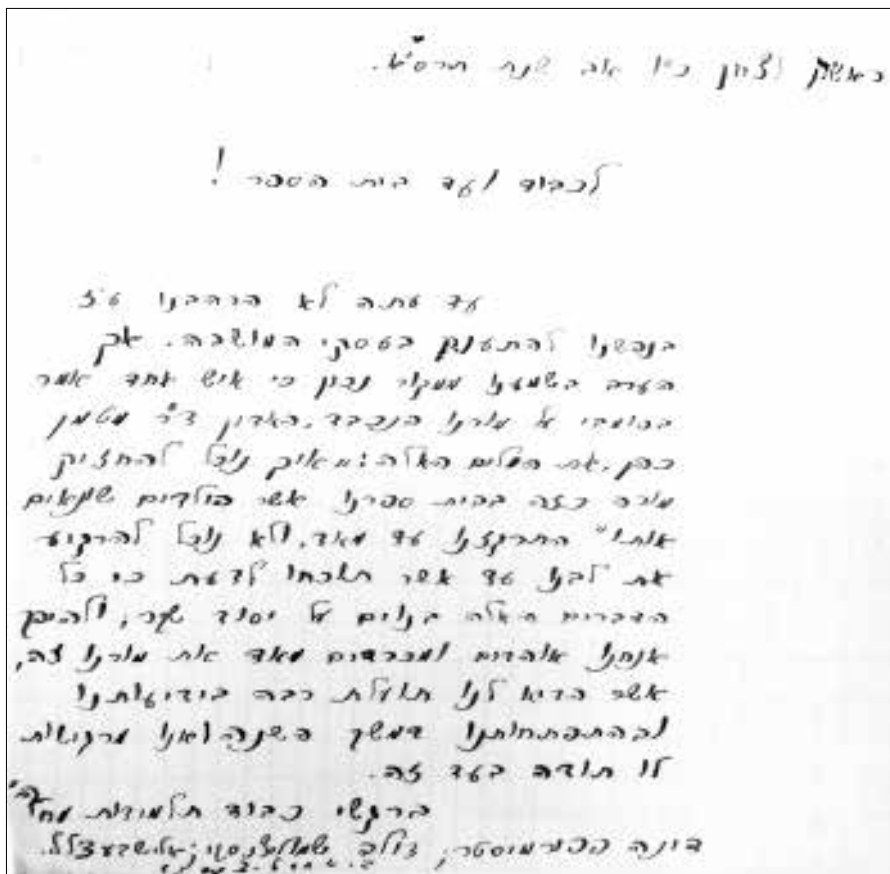 ראשון לציון כ"ו אב שנת תרס"א.
לכבוד ועד בית הספר!
עד עתה לא הרהבנו עז
בנפשנו להתעסק בעסקי המושבה. אך
הערב בשמענו ממקור נכון כי איש אחד אמר
בפומבי על מורנו הנכבד, האדון ד"ר מטמן
כהן, את המלים האלה: "איך נוכל להחזיק
מורה כזה בבית ספרנו אשר הילדים שונאים
אותו" התרגזנו עד מאד, ולא נוכל להרגיע
את לבנו עד אשר תוכחו לדעת כי כל
הדברים האלה בנוים על יסוד שקר, ולהיפך
אנחנו אוהבים ומכבדים מאד את מורנו זה,
אשר הביא לנו תועלת רבה בידיעותנו
ובהתפתחותנו במשך השנה ואנו מרגישות
לו תודה בעד זה.
ברגשי כבוד תלמידות
דינה הפטרמיסטר;